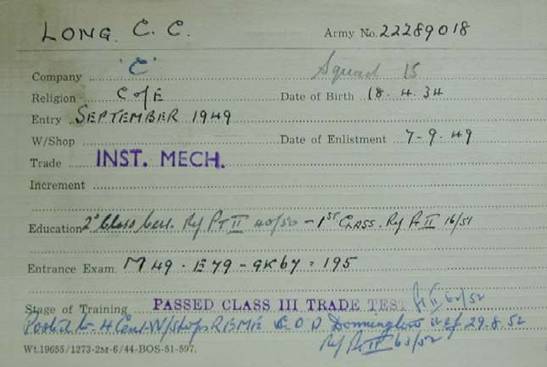 LONG. C. C. Army No. 22289018
Company 'C' Squad 15
Religion C of E Date of Birth 18.4.34
Entry SEPTEMBER 1949
W/Shop Date of Enlistment 7-9-49
Trade INST. MECH.
Increment
Education 2d Class Cert. Ref PT II 40/50 - 1ST CLASS. Ref Pt II 16/51
Entrance Exam. M49 - E79 - GK67 = 195
Stage of Training PASSED CLASS III TRADE TEST Pt II 62/52
Posted to 4 Cent W/Shops REME C O D Donnington w e f 29.8.52
Ref Pt II 63/52
Wt.19655/1273-2sr-6/44-BOS-51-597.